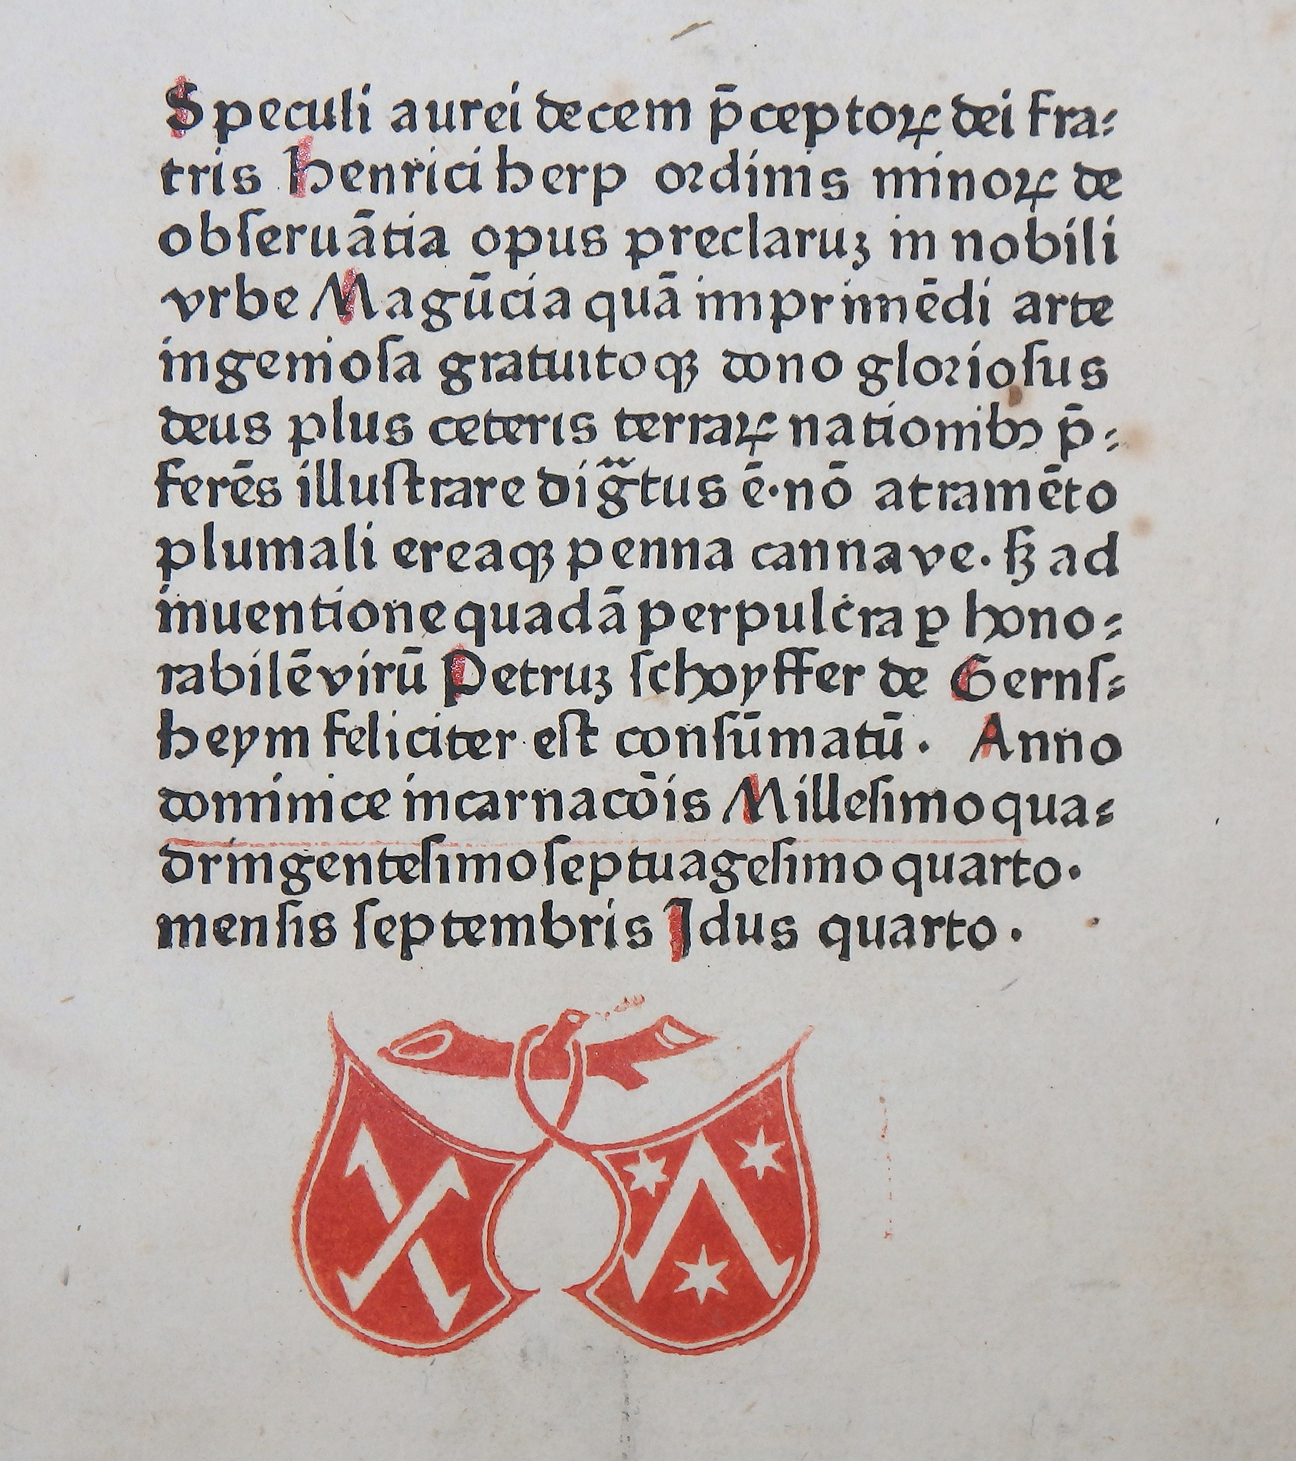 Speculi aurei decem p̄ceptoꝝ dei Fra⸗
tris Henrici herp ordinis minoꝝ de
obſeruātia opus preclaruꝫ in nobili
vrbe Magūcia quā imprimēdi arte
ingenioſa gratuitoqꝫ dono glorioſus
deus plus ceteris terraꝝ nationibꝰ p̄⸗
ferēs illuſtrare dig̈tus ē·nō atramēto
plumali ereaqꝫ penna cannave· ſꝫ ad
inuentione quadā perpulcra ꝑ hono⸗
rabilē virū Petruꝫ ſchoyffer de Gernſ⸗
heym feliciter eſt conſūmatū· Anno
dominice incarnacōis Milleſimo qua⸗
dringenteſimo ſeptuageſimo quarto·
menſis ſeptembris Jdus quarto·